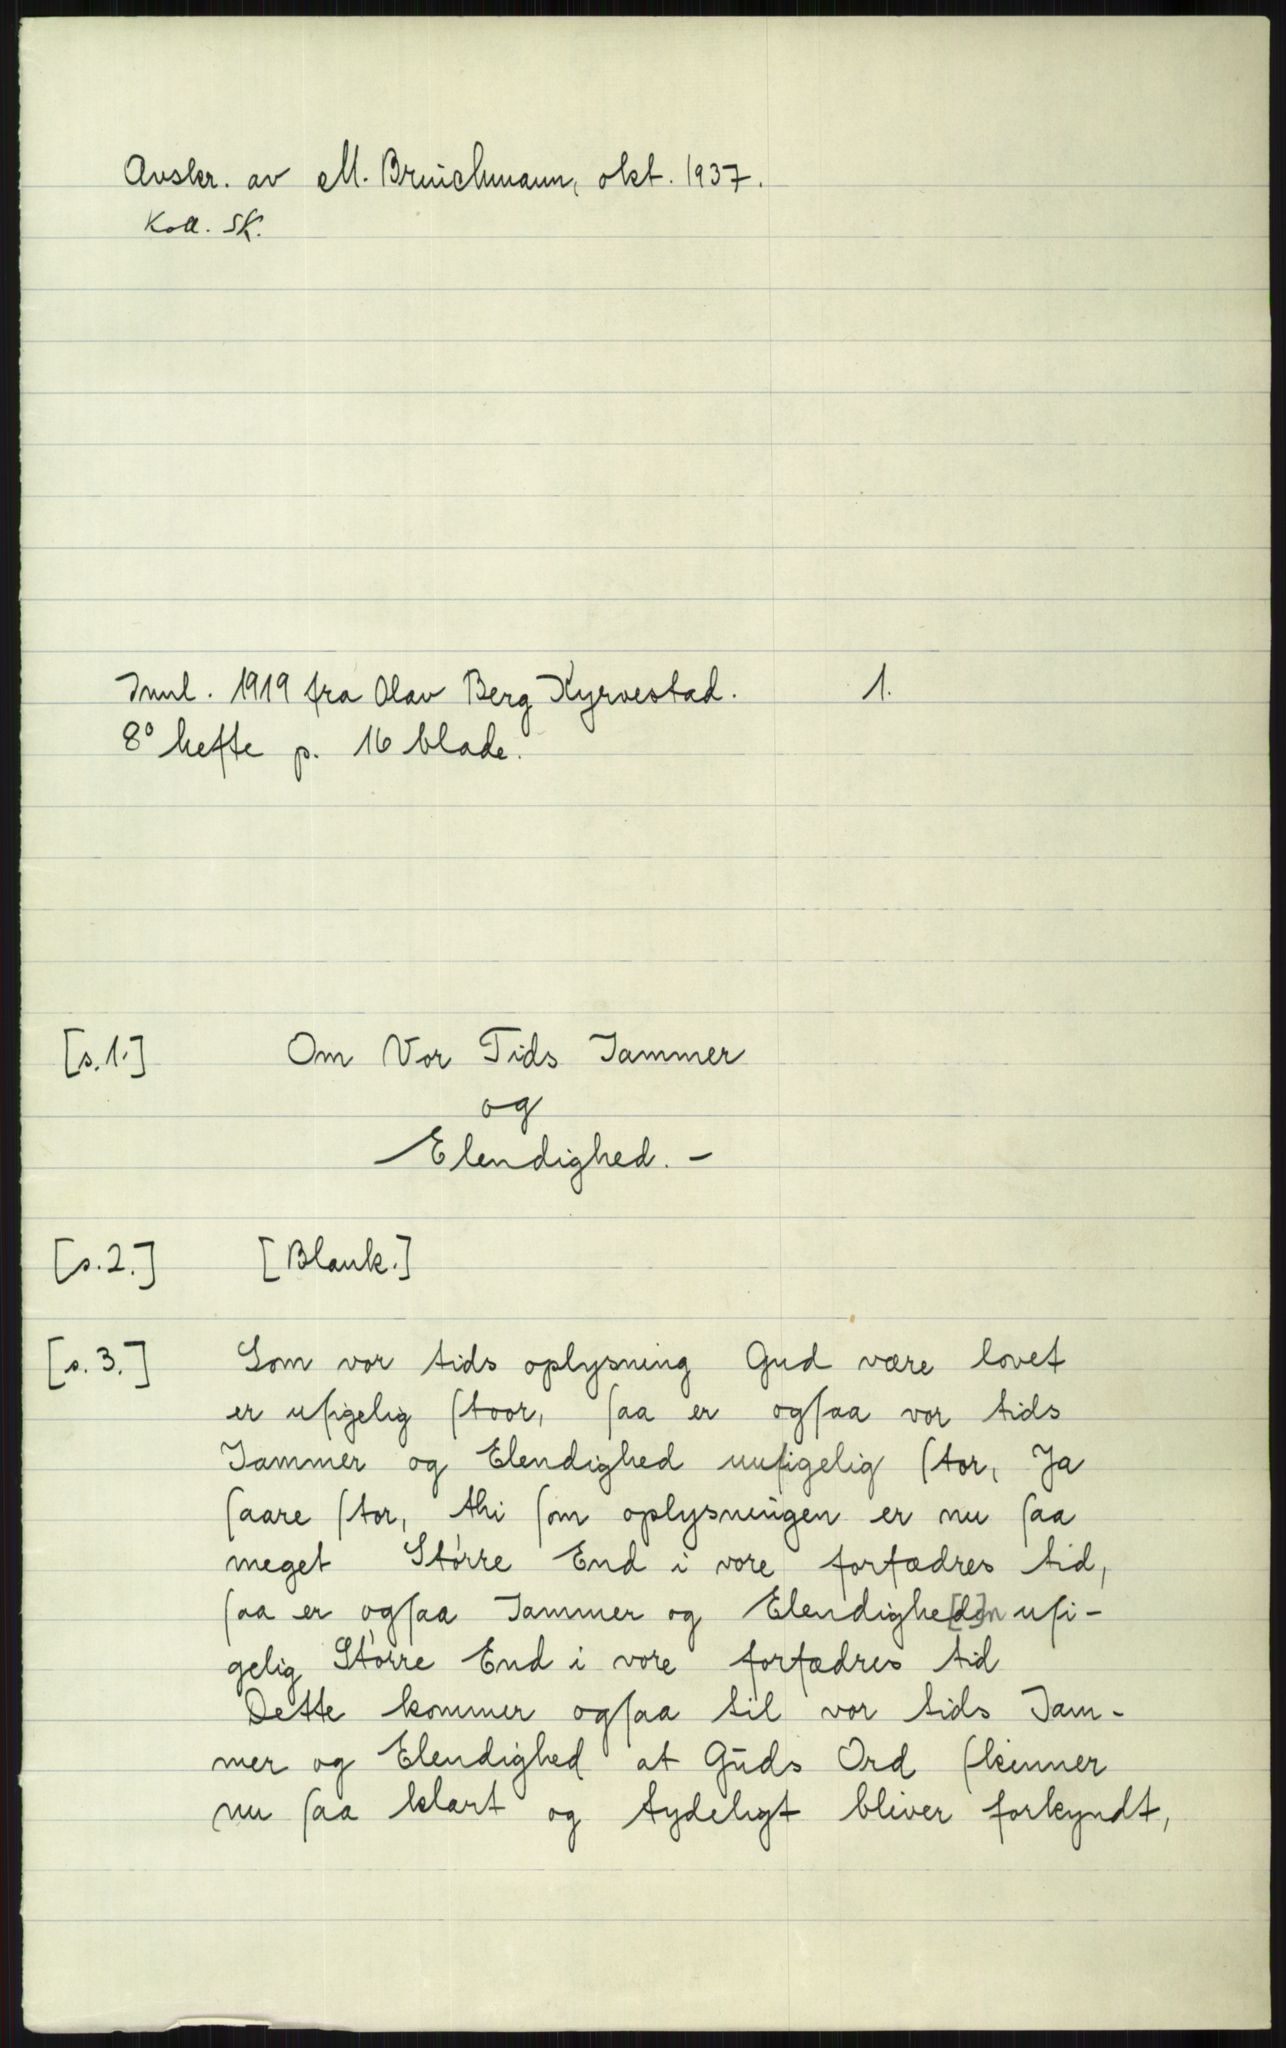 Avskr. av M. Bruichmann, okt. 1937.
Koll. SK.
Innl. 1919 fra Olav Berg Kyrvestad. 1.
8° hefte p. 16 blade.
[s.1.] Om Vor Tids Jammer
og
Elendighed. –
[s.2.] [Blank.]
[s.3.] Som vor tids oplysning Gud være lovet
er uſigelig ſtoor, ſaa er ogſaa vor tids
Jammer og Elendighed uuſigelig ſtor, Ja
ſaare ſtor, thi ſom oplysningen er nu ſaa
meget Større End i vore forfædres tid,
ſaa er ogſaa Jammer og Elendighe[d]en uſi-
gelig Større End i vore forfædres tid
Dette kommer ogſaa til vor tids Jam-
mer og Elendighed at Guds Ord ſkinner
nu ſaa klart og tydeligt bliver forkyndt,